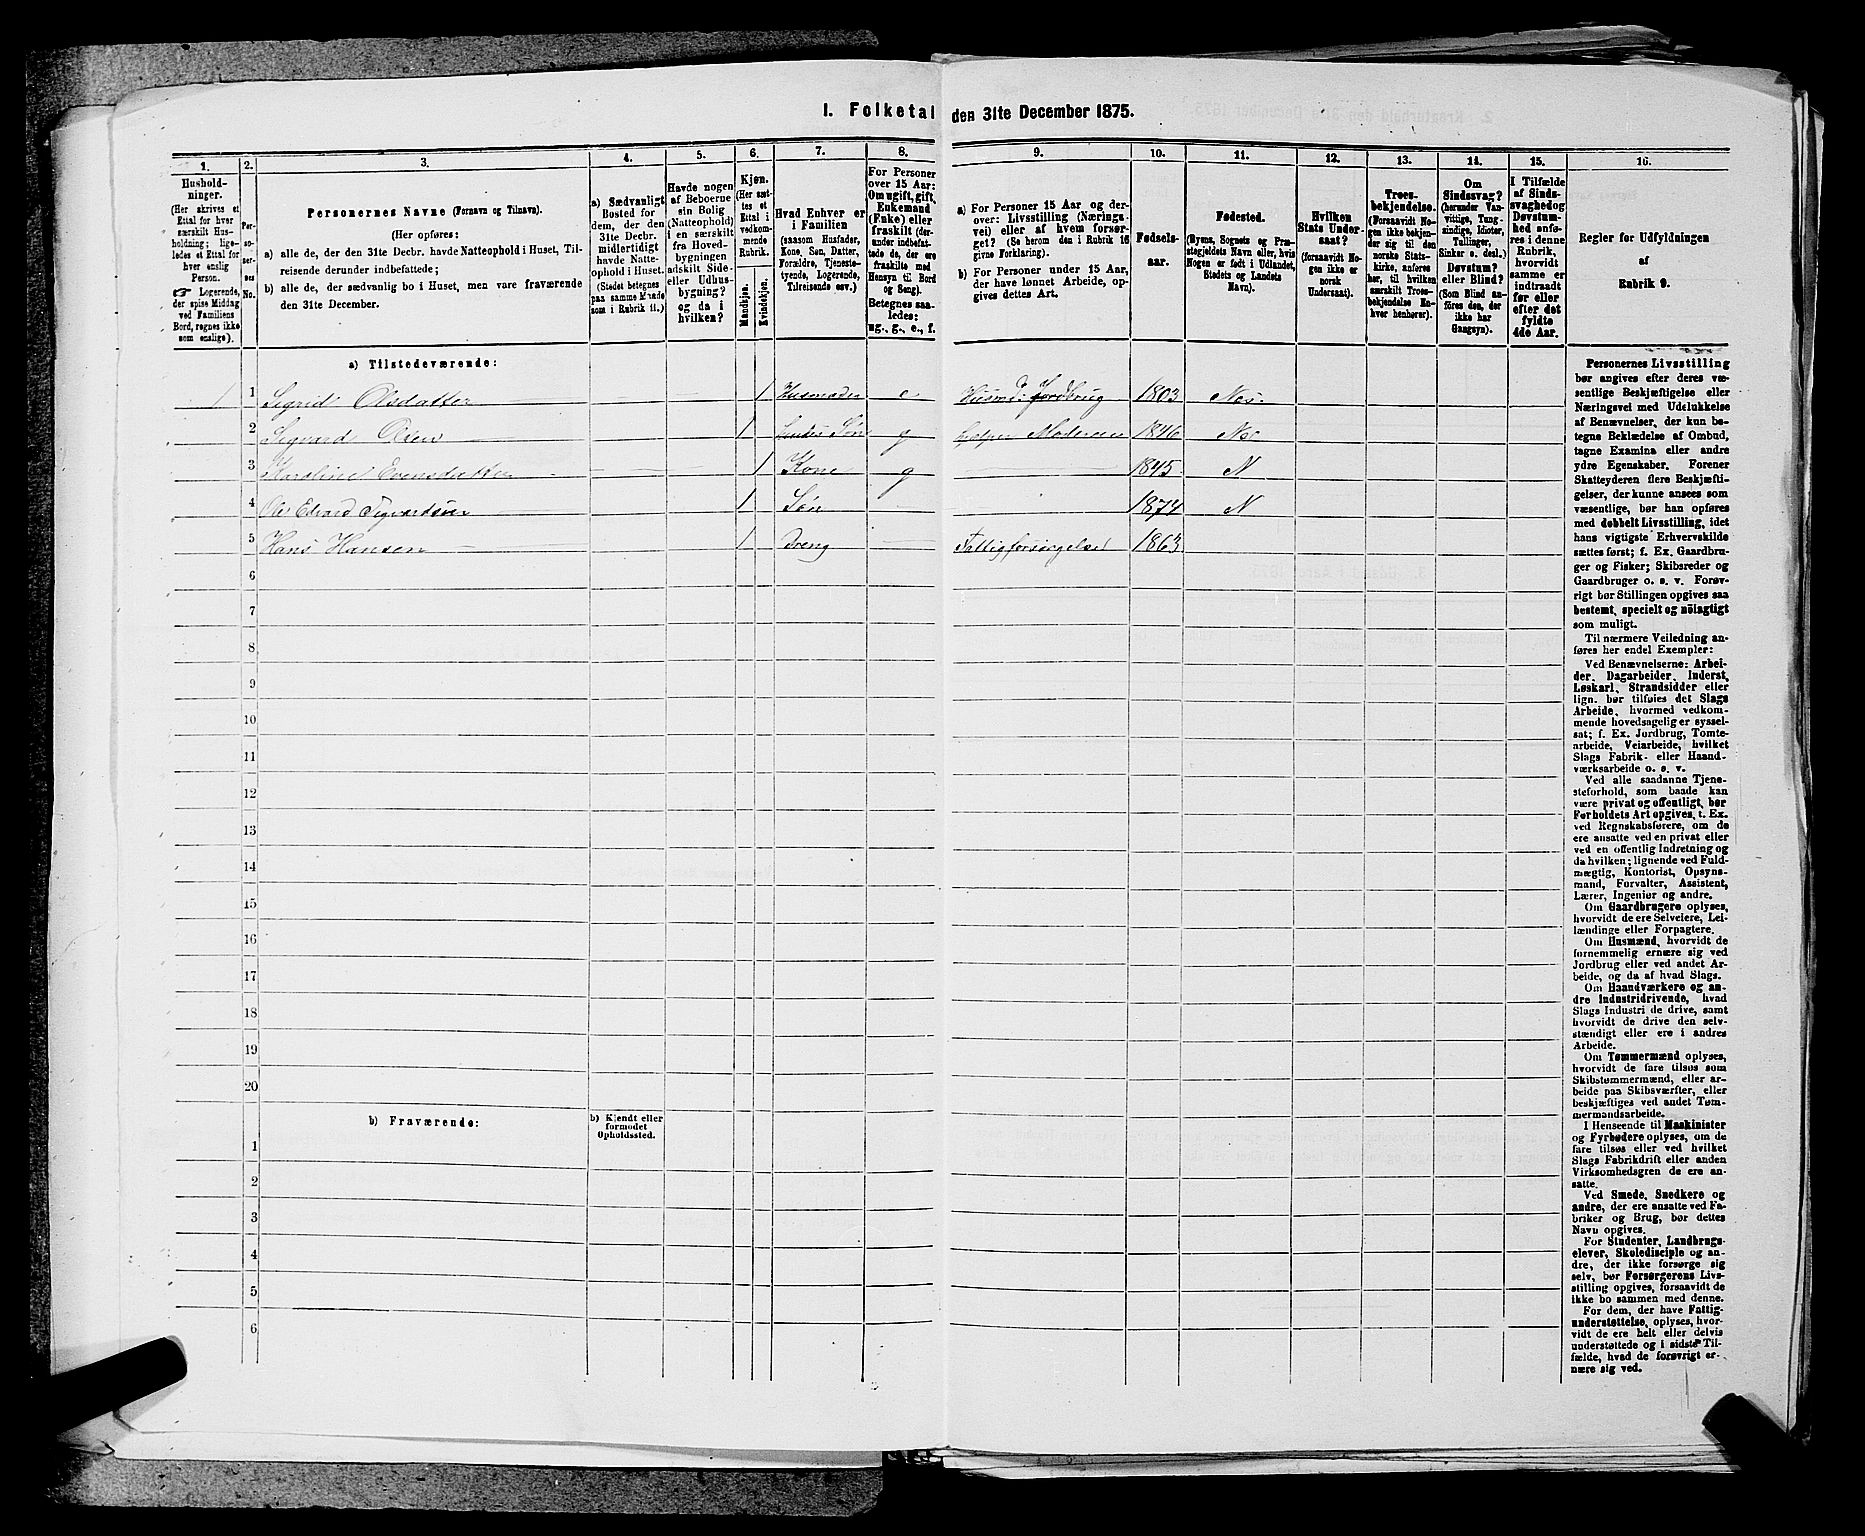 1. Folketal den 31te December 1875.
1. 2. 3. 4. 5. 6. 7. 8. 9. 10. 11. 12. 13. 14. 15. 16.
Hushold-
ninger.
(Her skrives et
Ettal for hver
særskilt Hus-
holdning; lige-
ledes et Ettal for
hver enslig
Person.
☞ Logerende,
der spise Middag
ved Familiens
Bord, regnes ikke
som enslige).
Per-
so-
ner-
nes
No.
Personernes Navne (Fornavn og Tilnavn).
(Her opføres:
a) alle de, der den 31te Decbr. havde Natteophold i Huset, Til-
reisende derunder indbefattede;
b) alle de, der sædvanlig bo i Huset, men vare fraværende
den 31te December.
a) Sædvanligt
Bosted for
dem, der den
31te Decbr.
midlertidigt
havde Natte-
ophold i Huset.
(Stedet betegnes
paa samme Maade
som i Rubrik 11.)
Havde nogen
af Beboerne
sin Bolig
(Natteophold)
i en særskilt
fra Hoved-
bygningen
adskilt Side-
eller Udhus-
bygning?
og da i
hvilken?
Kjøn.
(Her sæt-
tes et
Ettal i
vedkom-
mende
Rubrik.
Mandkjøn.
Kvindekjøn.
Hvad Enhver er
i Familien
(saasom Husfader,
Kone, Søn, Datter,
Forældre, Tjeneste-
tyende, Logerende,
Tilreisende osv.)
For Personer
over 15 Aar:
Om ugift, gift,
Enkemand
(Enke) eller
fraskilt (der-
under indbefat-
tede de, der ere
fraskilte med
Hensyn til Bord
og Seng).
Betegnes saa-
ledes:
ug., g., e., f.
a) For Personer 15 Aar og der-
over: Livsstilling (Nærings-
vei) eller af hvem forsør-
get? (Se herom den i Rubrik 16
givne Forklaring).
b) For Personer under 15 Aar,
der have lønnet Arbeide, op-
gives dettes Art.
Fødsels-
aar.
Fødested.
(Byens, Sognets og Præ-
stegjeldets Navn eller, hvis
Nogen er født i Udlandet,
Stedets og Landets
Navn).
Hvilken
Stats Under-
saat?
(forsaavidt No-
gen ikke er
norsk
Undersaat).
Troes-
bekjendelse.
(Forsaavidt No-
gen ikke bekjen-
der sig til den
norske Stats-
kirke, anføres
her, til hvilken
særskilt Troes-
bekjendelse En-
hver henhører).
Om
Sindssvag?
(herunder Van-
vittige, Tung-
sindige, Idioter,
Tullinger,
Sinker o. desl.)
Døvstum?
eller Blind?
(Som Blind an-
føres den, der
ikke har
Gangsyn).
I Tilfælde
af Sinds-
svaghed og
Døvstum-
hed anfø-
res i denne
Rubrik,
hvorvidt
samme er
indtraadt
før eller
efter det
fyldte
4de Aar.
Regler for Udfyldningen
af
Rubrik 9.
a) Tilstedeværende:
1 1 Sigrid Olsdatter 1 Husmoder e Husmd: Jordbrug 1803 Nes
2 Sigvard Olsen 1 hendes Søn g hjelper Moderen 1846 Nes
3 Karoline Evensdatter 1 Kone g 1845 N
4 Ole Edvard Sigvardsen 1 Søn 1874 N
5 Hans Hansen 1 Dreng Fattigforsørgelse 1863
6
7
8
9
10
11
12
13
14
15
16
17
18
19
20
b) Fraværende:
b) Kjendt eller
formodet
Opholdssted.
1
2
3
4
5
6
Personernes Livsstilling
bør angives efter deres væ-
sentlige Beskjæftigelse eller
Næringsvei med Udelukkelse
af Benævnelser, der kun be-
tegne Beklædelse af Ombud,
tagne Examina eller andre
ydre Egenskaber. Forener
Skatteyderen flere Beskjæfti-
gelser, der kunne ansees som
væsentlige, bør han opføres
med dobbelt Livsstilling, idet
hans vigtigste Erhvervskilde
sættes først; f. Ex. Gaardbru-
ger og Fisker; Skibsreder og
Gaardbruger o. s. v. Forøv-
rigt bør Stillingen opgives saa
bestemt, specielt og nöiagtigt
som muligt.
Til nærmere Veiledning an-
føres her endel Exempler:
Ved Benævnelserne: Arbei-
der, Dagarbeider, Inderst,
Løskarl, Strandsidder eller
lign. bør tilføies det Slags
Arbeide, hvormed vedkom-
mende hovedsagelig er syssel-
sat; f. Ex. Jordbrug, Tomte-
arbeide, Veiarbeide, hvilket
Slags Fabrik- eller Haand-
værksarbeide o. s. v.
Ved alle saadanne Tjene-
steforhold, som baade kan
være privat og offentligt, bør
Forholdets Art opgives, t. Ex.
ved Regnskabsførere, om de
ere ansatte ved en privat eller
ved en offentlig Indretning og
da hvilken; lignende ved Fuld-
mægtig, Kontorist, Opsyns-
mand, Forvalter, Assistent,
Lærer, Ingeniør og andre.
Om Gaardbrugere oplyses,
hvorvidt de ere Selveiere, Lei-
lændinge eller Forpagtere.
Om Husmænd, hvorvidt de
fornemmelig ernære sig ved
Jordbrug eller ved andet Ar-
beide, og da af hvad Slags.
Om Haandværkere og an-
dre industridrivende, hvad
Slags Industri de drive, samt
hvorvidt de drive den selv-
stændigt eller ere i andres
Arbeide.
Om Tømmermænd oplyses,
hvorvidt de fare tilsøs som
Skibstømmermænd, eller ar-
beide paa Skibsværfter, eller
beskjæftiges ved andet Tøm-
mermandsarbeide.
I Henseende til Maskinister
og Fyrbødere oplyses, om de
fare tilsøs eller ved hvilket
Slags Fabrikdrift eller anden
Virksomhedsgren de ere an-
satte.
Ved Smede, Snedkere og
andre, der ere ansatte ved Fa-
briker og Brug, bør dettes
Navn opgives.
For Studenter, Landbrugs-
elever, Skoledisciple og an-
dre, der ikke forsørge sig
selv, bør Forsørgerens Livs-
stilling opgives, forsaavidt de
ikke bo sammen med denne.
For dem, der have Fattig-
understøttelse, oplyses, hvor-
vidt de ere helt eller delvis
understøttede og i sidste Til-
fælde, hvad de forøvrigt er-
nære sig ved.